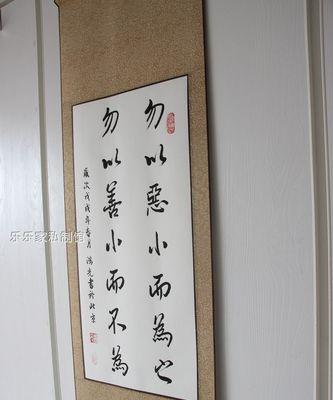 勿以惡小而為之
勿以善小而不為
歲次戊戌年春月 書於北京
乐乐家私制馆